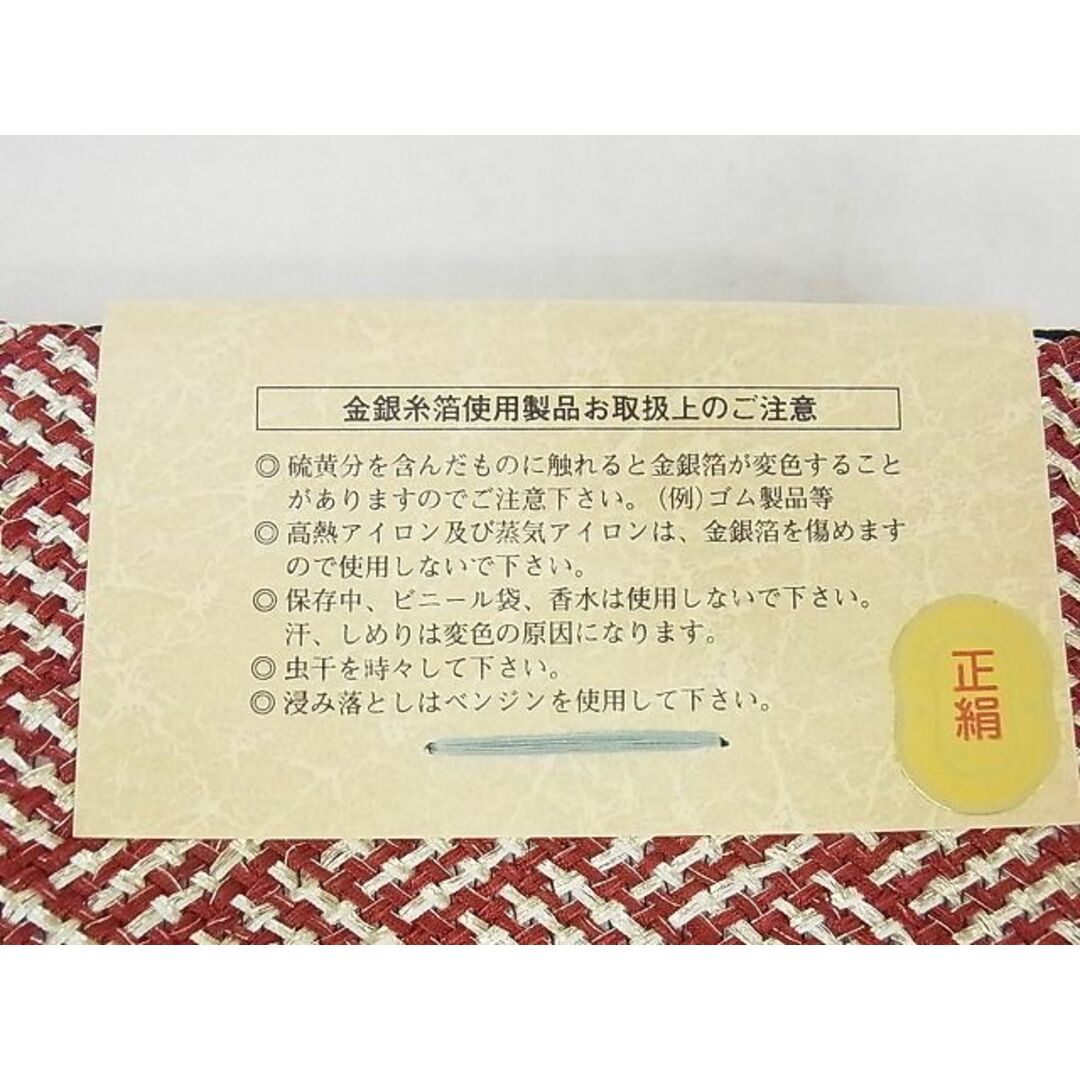 金銀糸箔使用製品お取扱上のご注意
◎ 硫黄分を含んだものに触れると金銀箔が変色すること
がありますのでご注意下さい。(例)ゴム製品等
◎ 高熱アイロン及び蒸気アイロンは、金銀箔を傷めます
ので使用しないで下さい。
◎ 保存中、ビニール袋、香水は使用しないで下さい。
汗、しめりは変色の原因になります。
◎ 虫干を時々して下さい。
◎ 浸み落としはベンジンを使用して下さい。
正絹